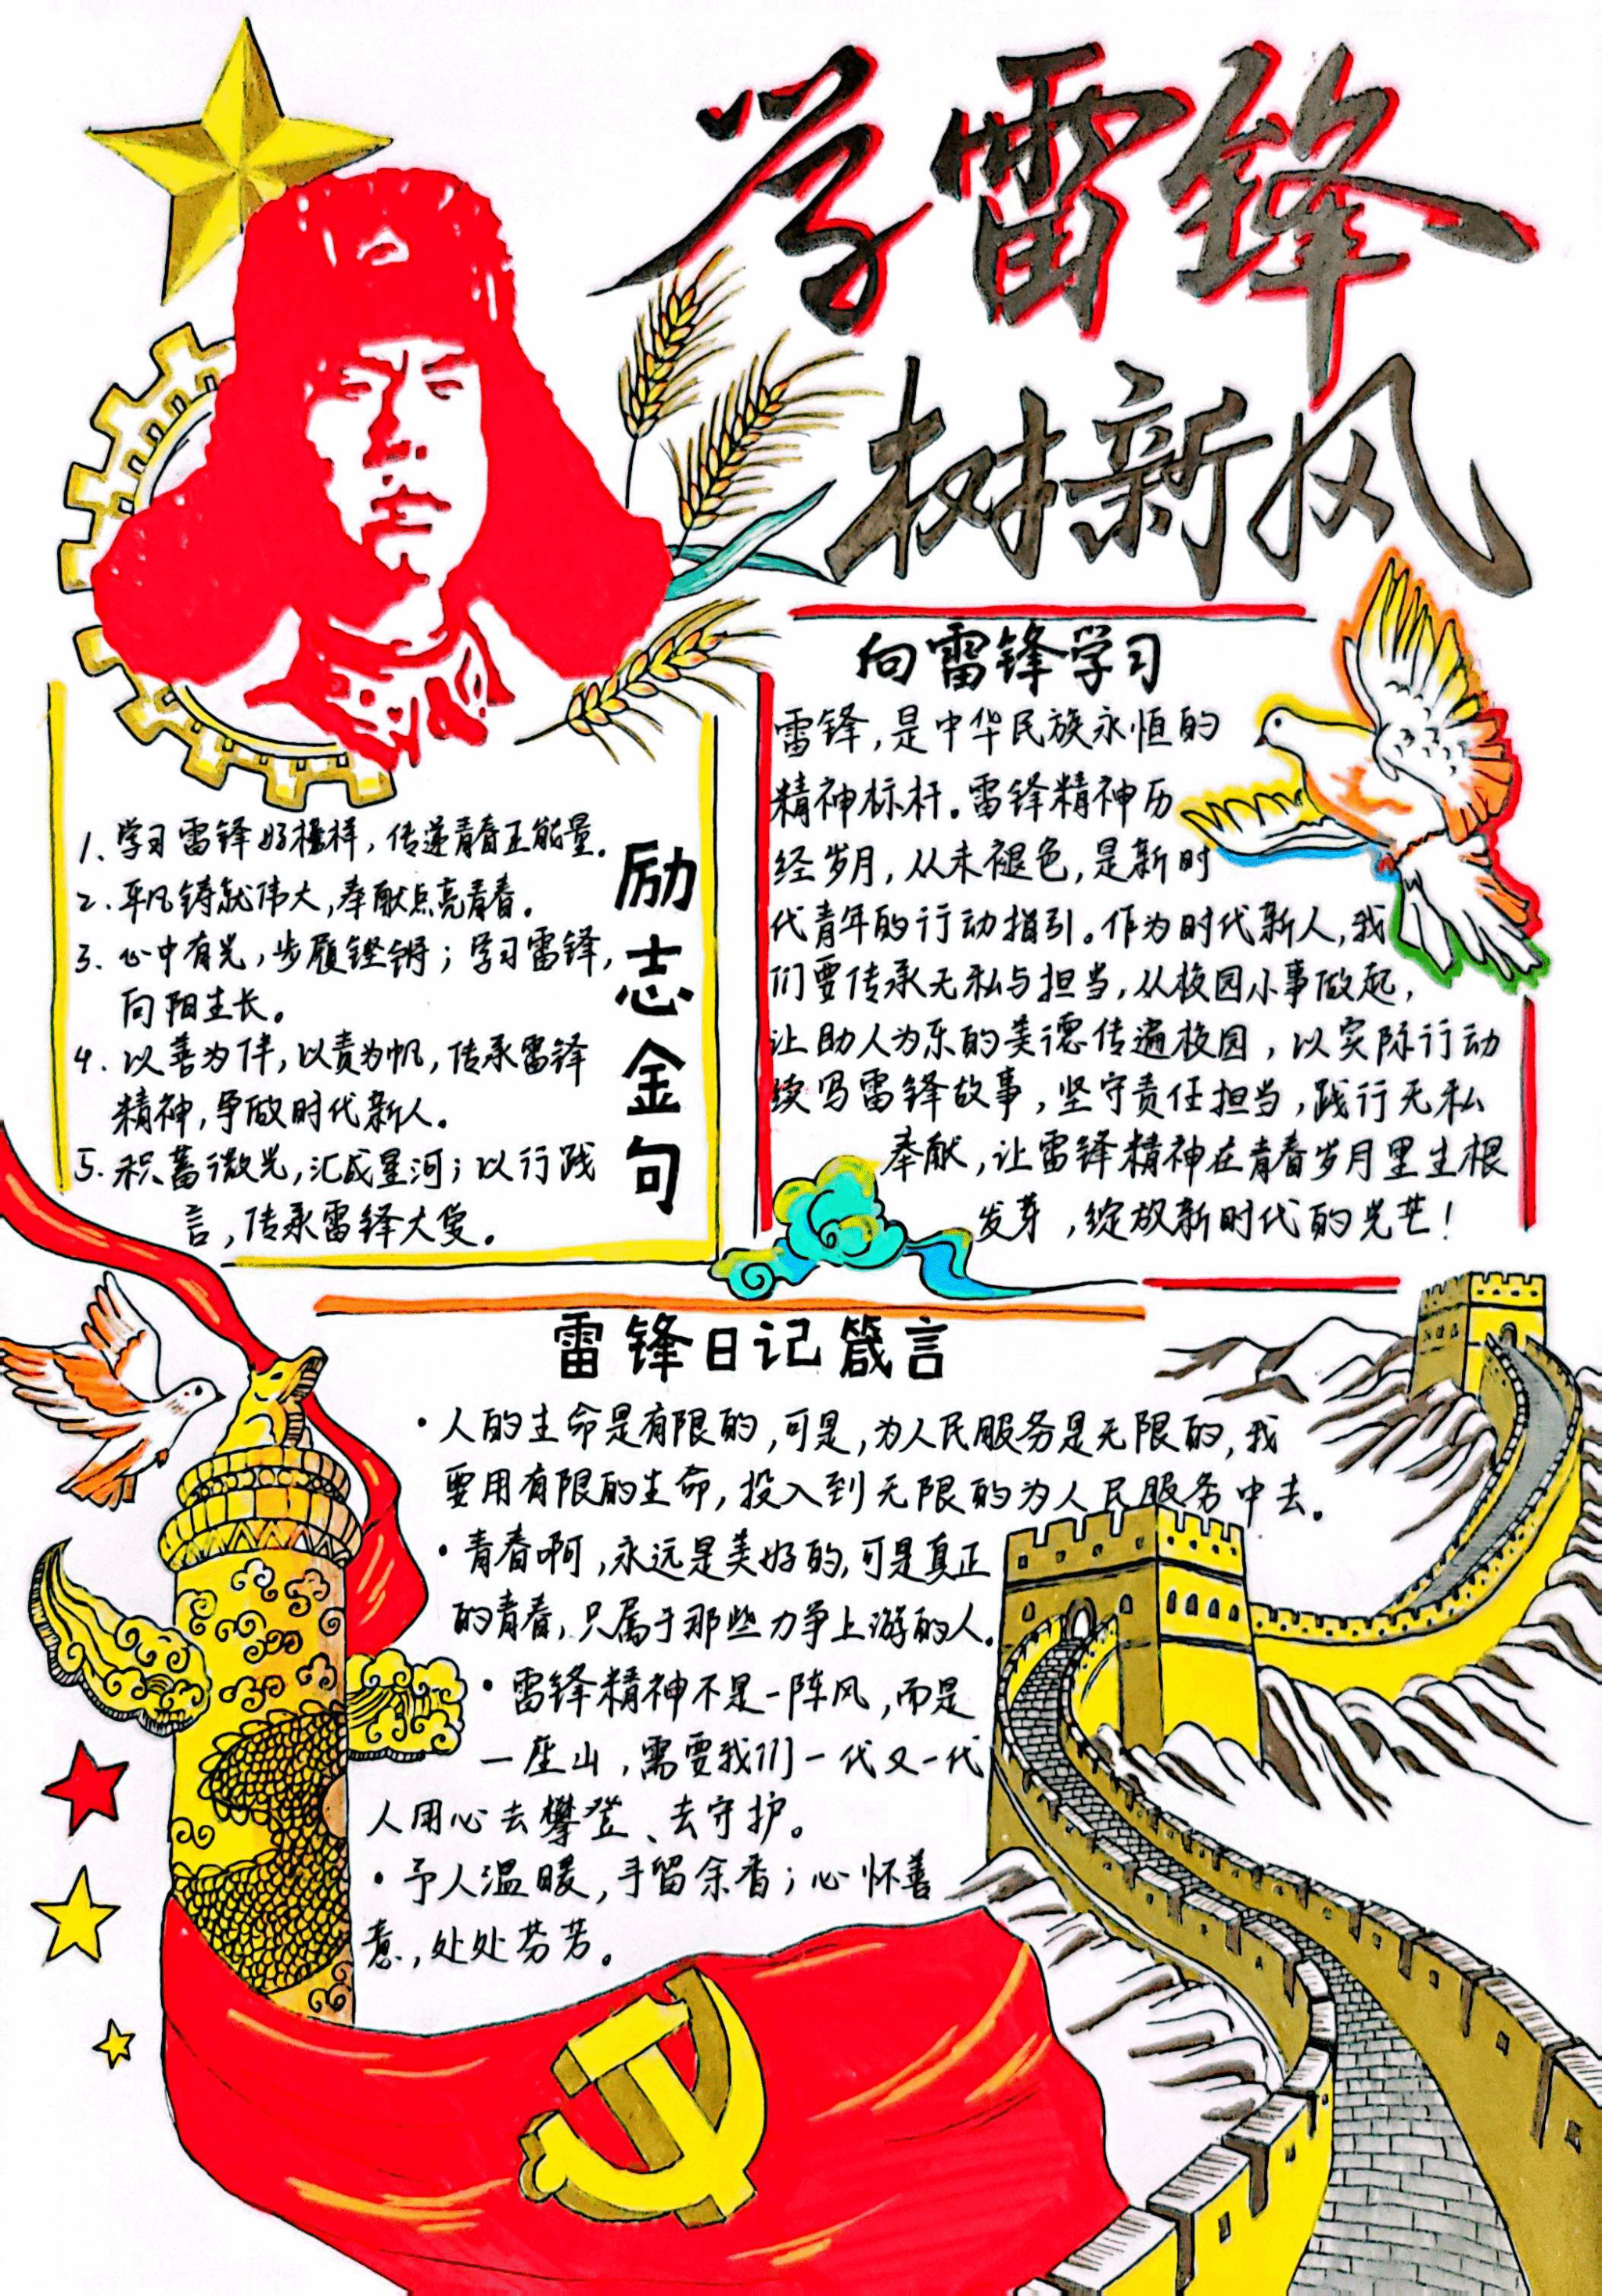 学雷锋
树新风
1、学习雷锋好榜样，传递青春正能量。
2、平凡铸就伟大，奉献点亮青春。
3、心中有光，步履铿锵；学习雷锋，
向阳生长。
4、以善为伴，以责为帆，传承雷锋
精神，争做时代新人。
5、积蓄微光，汇成星河；以行践
言，传承雷锋大爱。
励志金句
向雷锋学习
雷锋，是中华民族永恒的
精神标杆。雷锋精神历
经岁月，从未褪色，是新时
代青年的行动指引。作为时代新人，我
们要传承无私与担当，从校园小事做起，
让助人为乐的美德传遍校园，以实际行动
续写雷锋故事，坚守责任担当，践行无私
奉献，让雷锋精神在青春岁月里生根
发芽，绽放新时代的光芒！
雷锋日记箴言
·人的生命是有限的，可是，为人民服务是无限的，我
要用有限的生命，投入到无限的为人民服务中去。
·青春啊，永远是美好的，可是真正
的青春，只属于那些力争上游的人。
·雷锋精神不是一阵风，而是
一座山，需要我们一代又一代
人用心去攀登、去守护。
·予人温暖，手留余香；心怀善
意，处处芬芳。